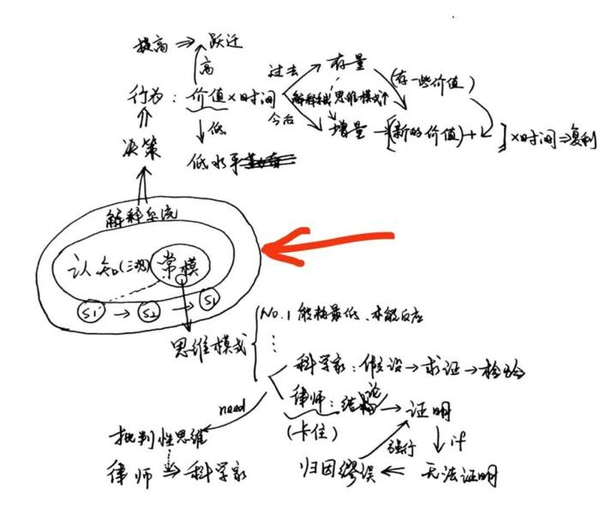 提高 ⇒ 跃迁
高
行为: 价值×时间
低
低水平
过去
存量
(存一些价值)
解释 思维模式
今后
增量 → [(新的价值) + ] ×时间 ⇒ 复利
决策
解释系统
认知(三观) 常模
S1 → S2 → S1
思维模式
No.1 能耗最低、本能反应
⋮
科学家: 假设 → 求证 → 检验
律师: 结论 → 证明
(卡住)
need
批判性思维
律师 ⇒ 科学家
强行
if
归因谬误 ⇐ 无法证明